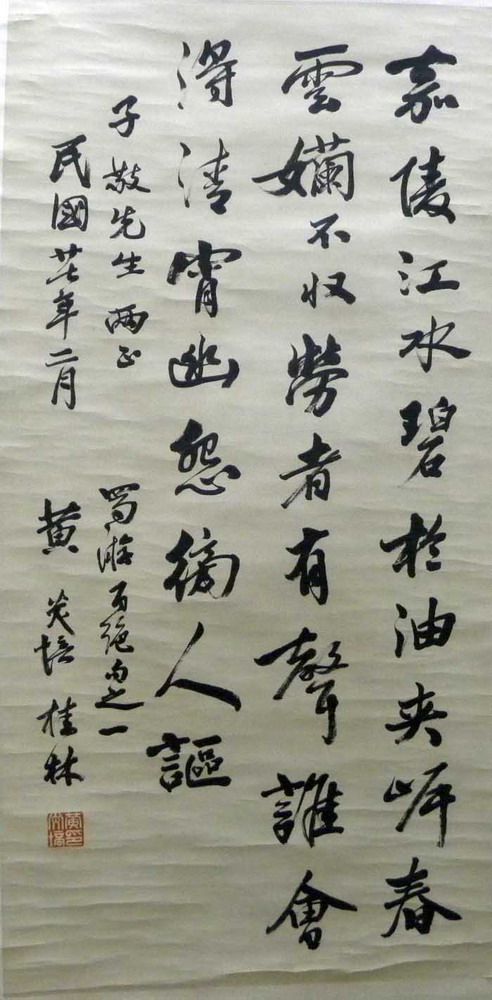 嘉陵江水碧於油夾岍春
雲嬾不收勞者有聲誰會
得清宵幽怨徬人謳
子敬先生兩正
蜀游百絕句之一
民國廿七年二月
黃炎培桂林